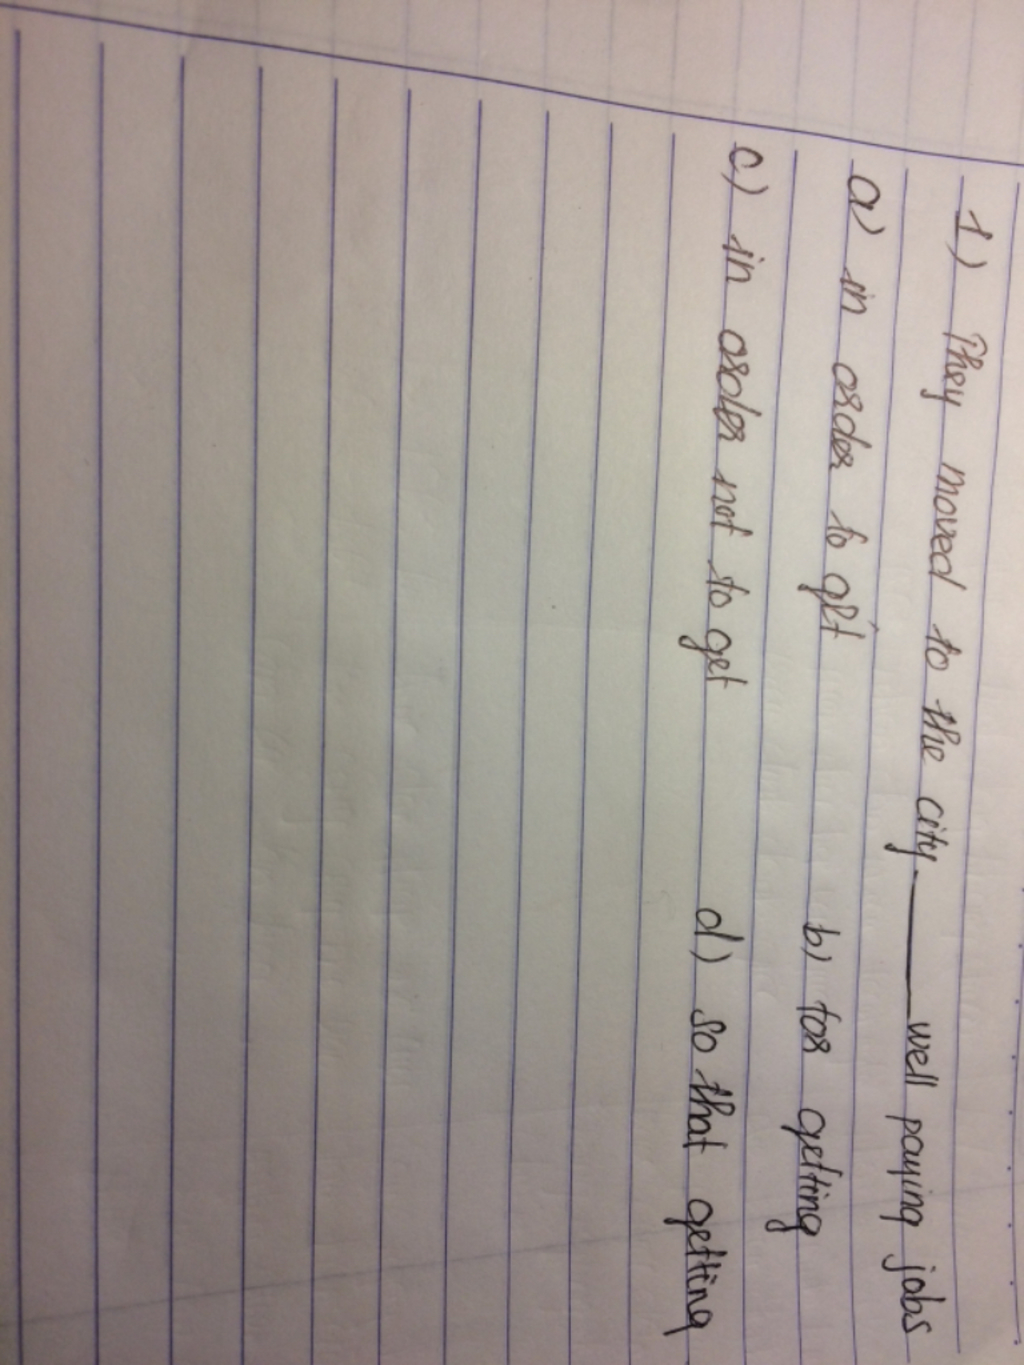 1) They moved to the city ____ well paying jobs
a) in order to get b) for getting
c) in order not to get d) so that getting